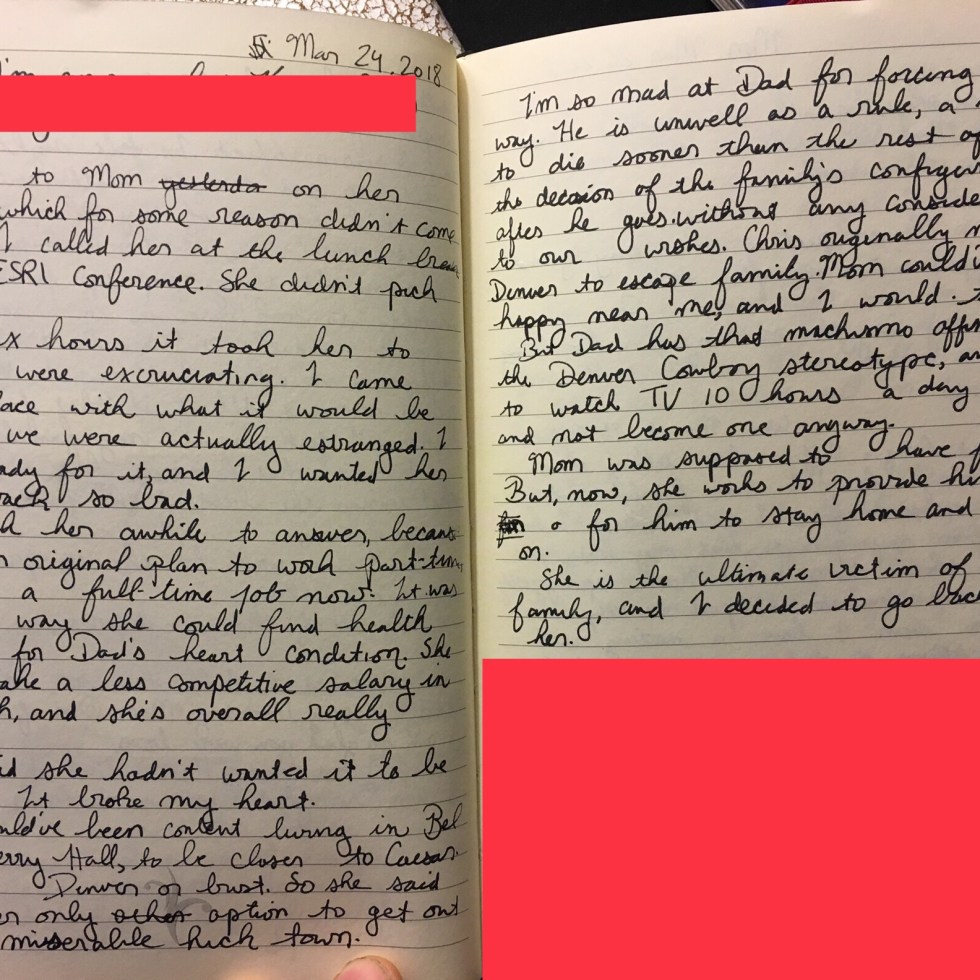 Mar 24, 2018
to Mom yesterda on her
which for some reason didn't come
I called her at the lunch brea
ESRI Conference. She didn't pick
x hours it took her to
were excruciating. I came
ace with what it would be
we were actually estranged. I
ady for it, and I wanted her
back so bad.
her awhile to answer, becaus
original plan to work part-tim
a full-time job now. It was
way she could find health
for Dad's heart condition. She
ake a less competitive salary in
h, and she's overall really
id she hadn't wanted it to be
It broke my heart.
uld've been content living in Bel
erry Hall, to be closer to Caesar.
Denver or bust. So she said
er only other option to get out
miserable hick town.
I'm so mad at Dad for forcing
way. He is unwell as a rule, a
to die sooner than the rest of
the decision of the family's configur
after he goes without any conside
to our wishes. Chris originally m
Denver to escape family. Mom couldv
happy near me, and I would.
But Dad has that machismo affin
the Denver Cowboy stereotype, an
to watch TV 10 hours a day
and not become one anyway.
Mom was supposed to have
But, now, she works to provide hi
for him to stay home and
on.
She is the ultimate victim of
family, and I decided to go back
her.